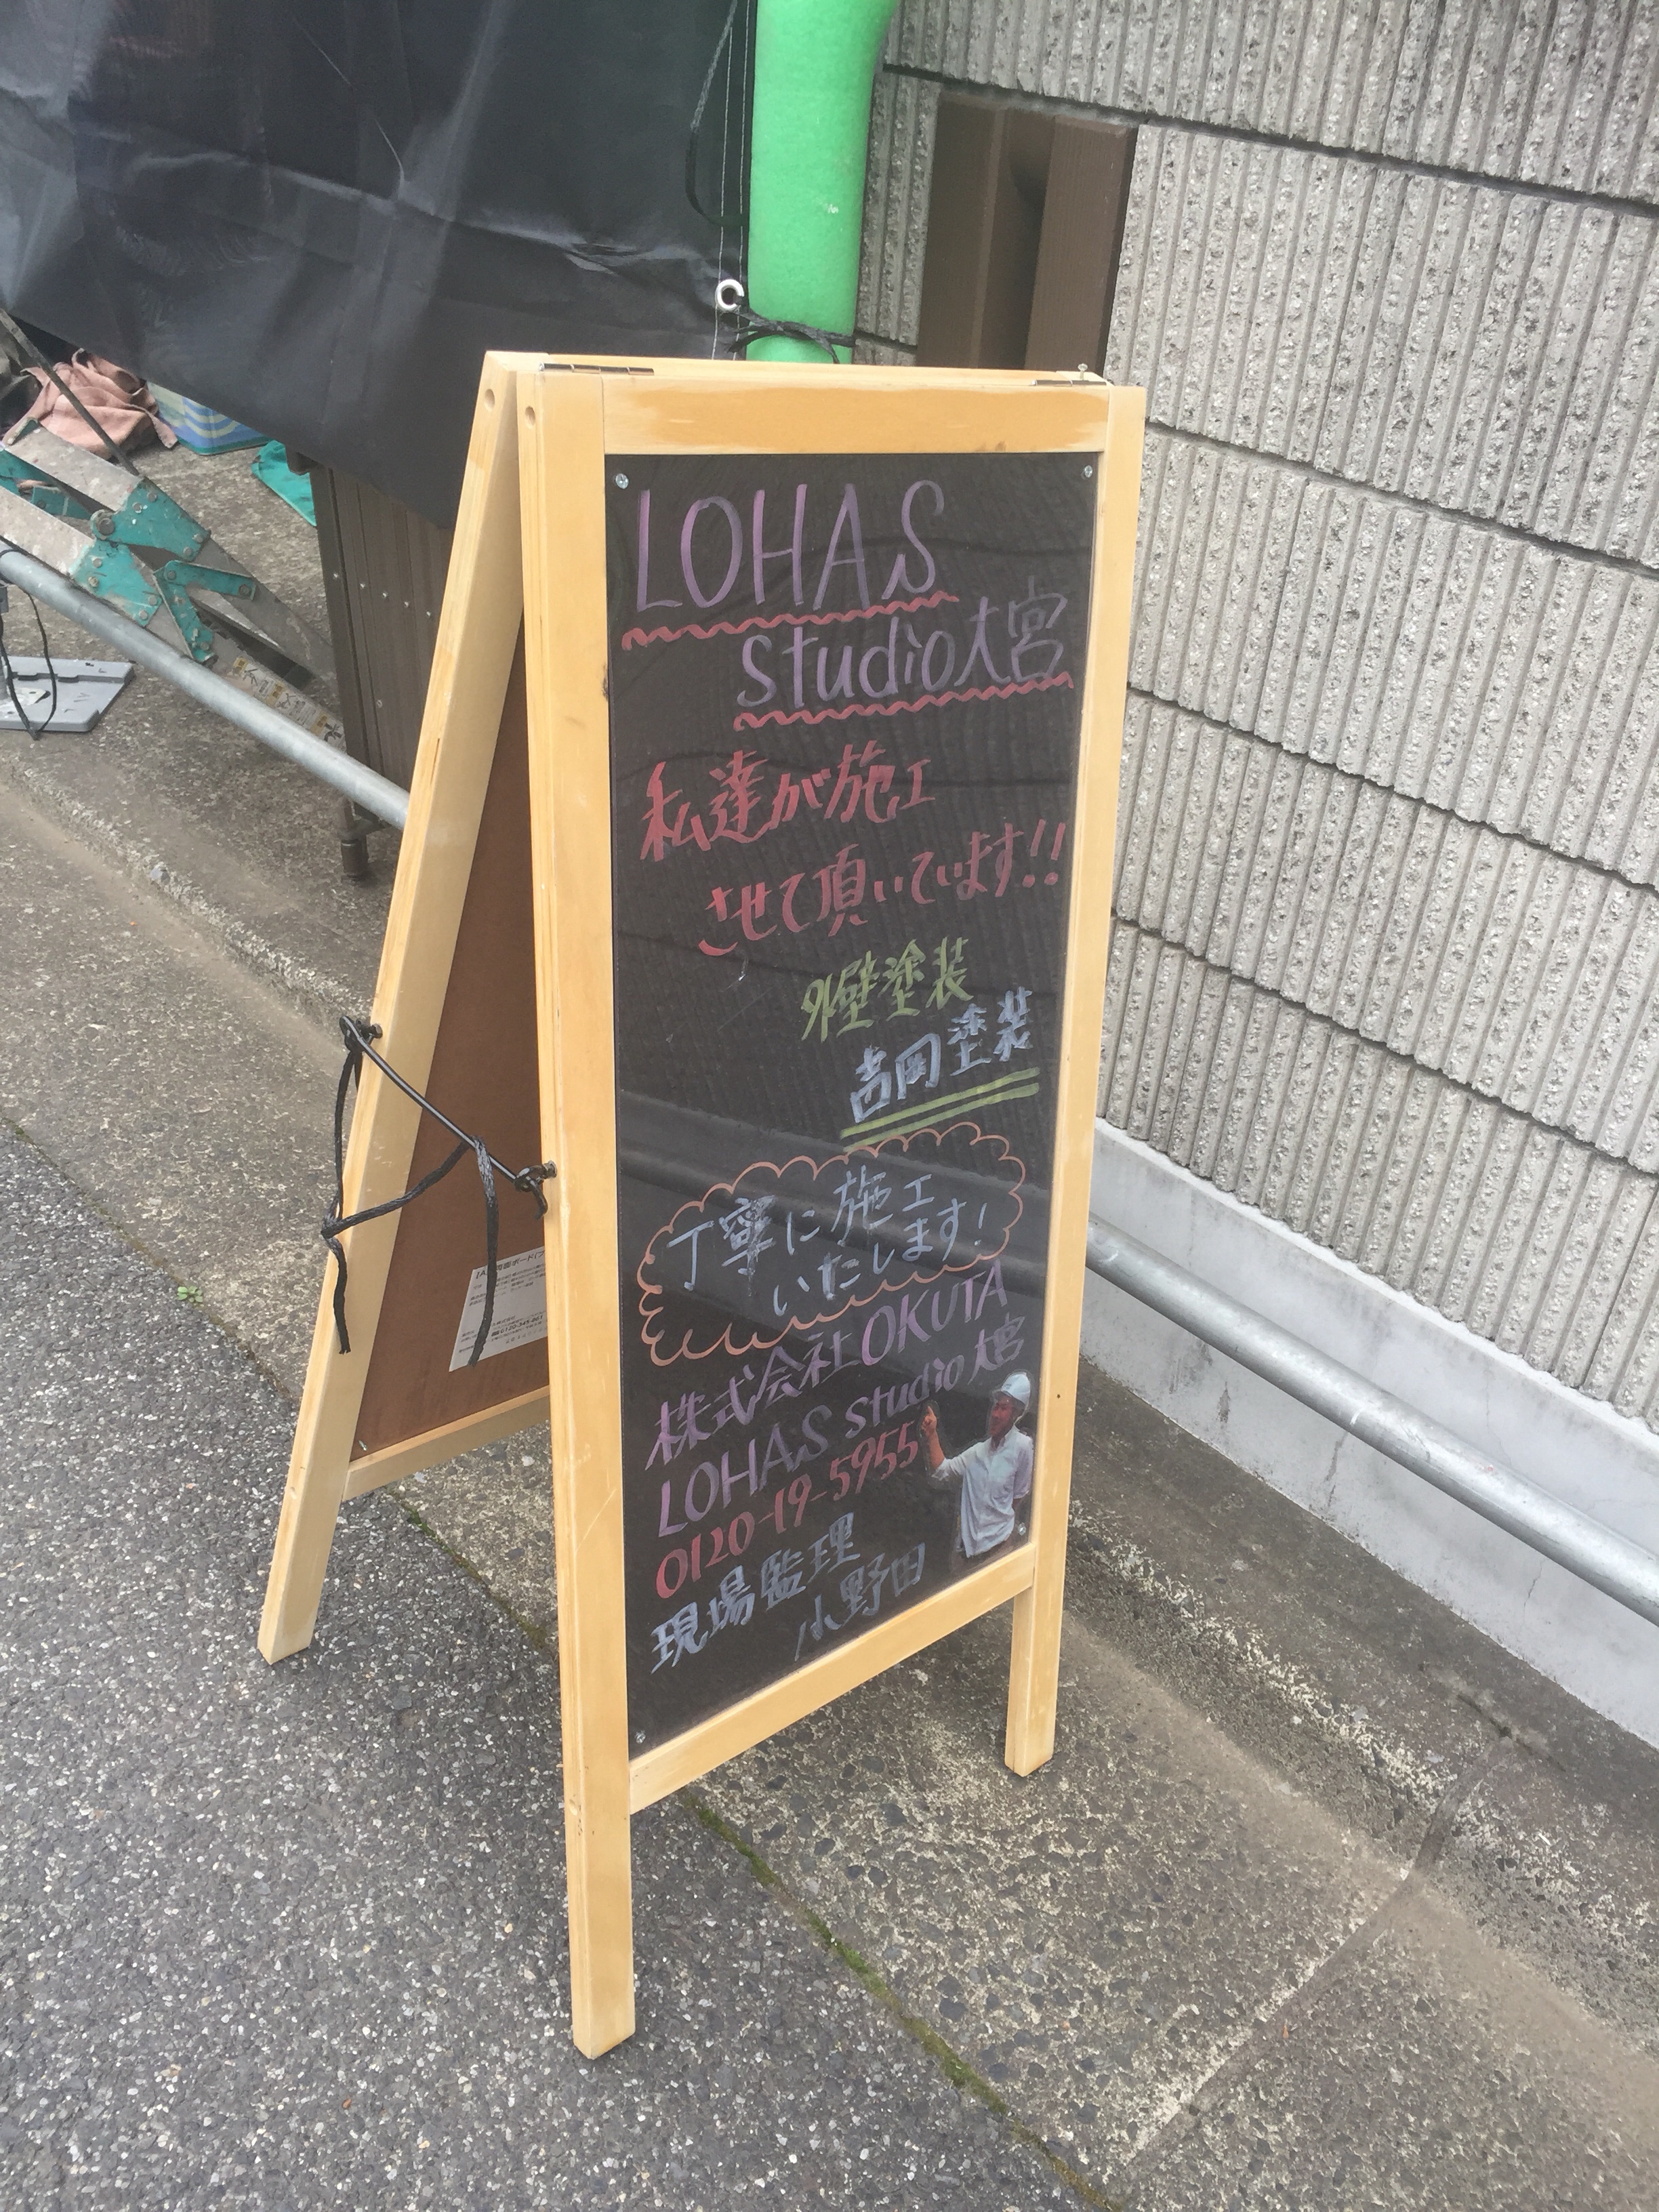 LOHAS
studio大宮
私達が施工
させて頂いています!!
外壁塗装
吉岡塗装
丁寧に施工
いたします!
株式会社OKUTA
LOHAS studio大宮
0120-19-5955
現場監理
小野田